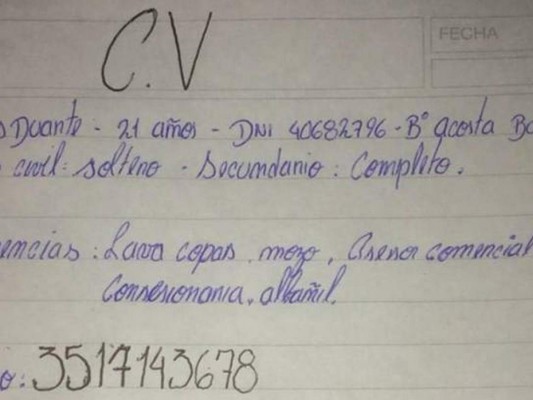 FECHA
C.V
Duarte - 21 años - DNI 40682796 - B° acosta
civil: soltero - Secundario: Completo.
encias: Lava copas, mozo, Asesor comercial
Consesionaria, albañil.
o: 3517143678